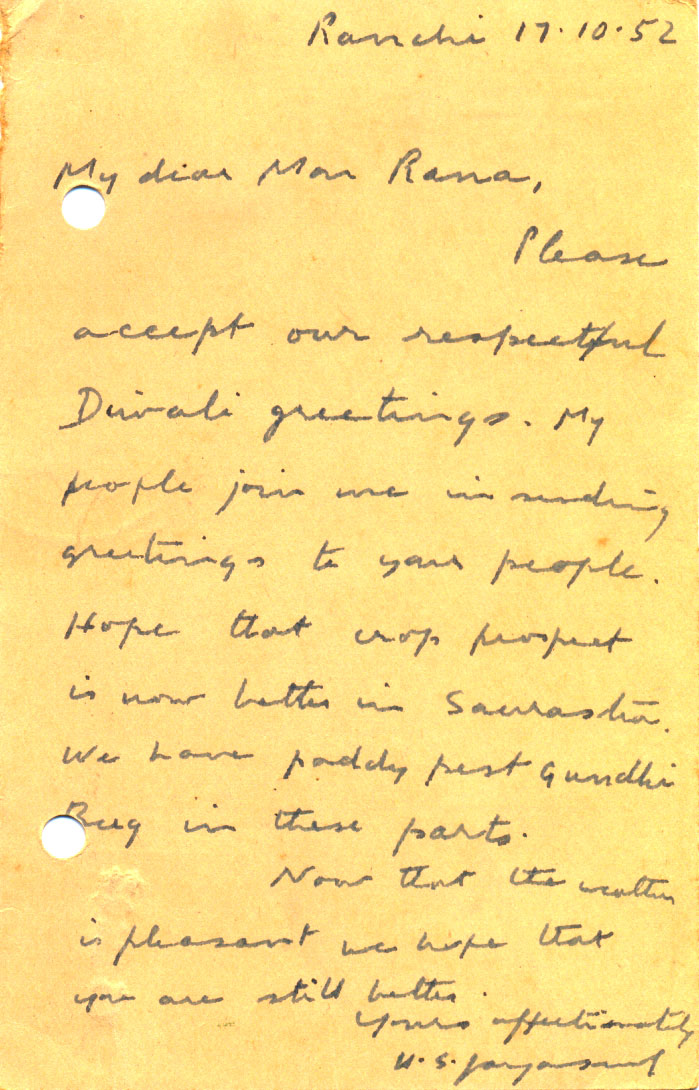 Ranchi 17.10.52
My dear Mon Rana,
Please
accept our respectful
Diwali greetings. My
people join me in sending
greetings to your people.
Hope that crop prospect
is now better in Saurastra.
We have paddy pest Gundhi
Bug in these parts.
Now that the weather
is pleasant we hope that
you are still better.
Yours affectionately
U.S.